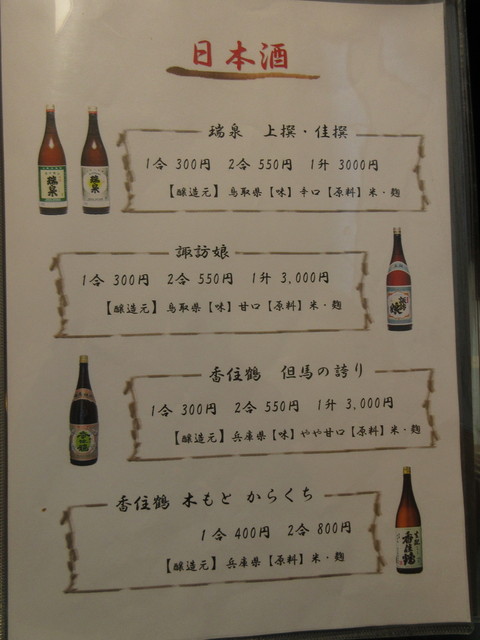 日本酒
瑞泉 上撰・佳撰
1合 300円 2合 550円 1升 3000円
【醸造元】鳥取県【味】辛口【原料】米・麹
諏訪娘
1合 300円 2合 550円 1升 3,000円
【醸造元】鳥取県【味】甘口【原料】米・麹
香住鶴 但馬の誇り
1合 300円 2合 550円 1升 3,000円
【醸造元】兵庫県【味】やや甘口【原料】米・麹
香住鶴 木もと からくち
1合 400円 2合 800円
【醸造元】兵庫県【原料】米・麹
瑞泉
瑞泉
香住鶴